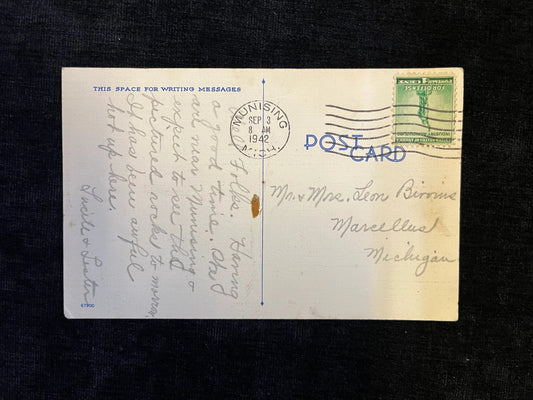 THIS SPACE FOR WRITING MESSAGES
Hello Folks. Having
a good time. Are
at near Munising &
expect to see the
pictured rocks to morrow
It has been awful
hot up here.
Lucile & Lester
47900
MUNISING
SEP 3
8 AM
1942
MICH.
FOR DEFENSE
POST CARD
Mr. & Mrs. Leon
Marcellus
Michigan